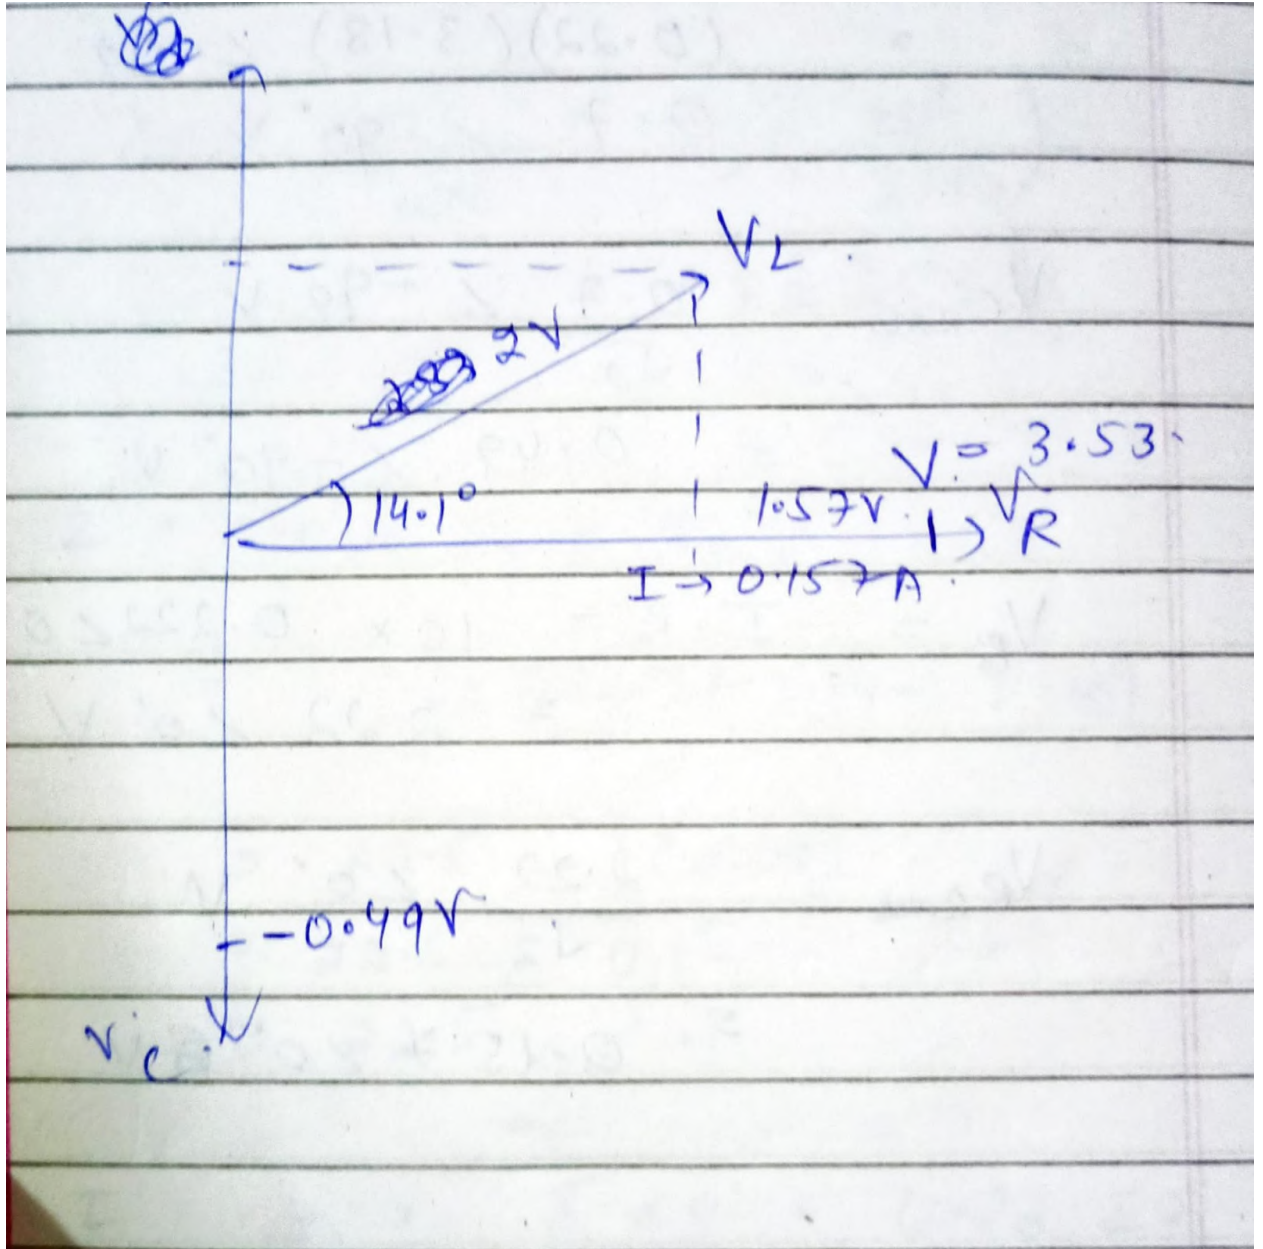 V_L
2V
V = 3.53
14.1°
1.57V
V_R
I → 0.157A
-0.49V
V_C